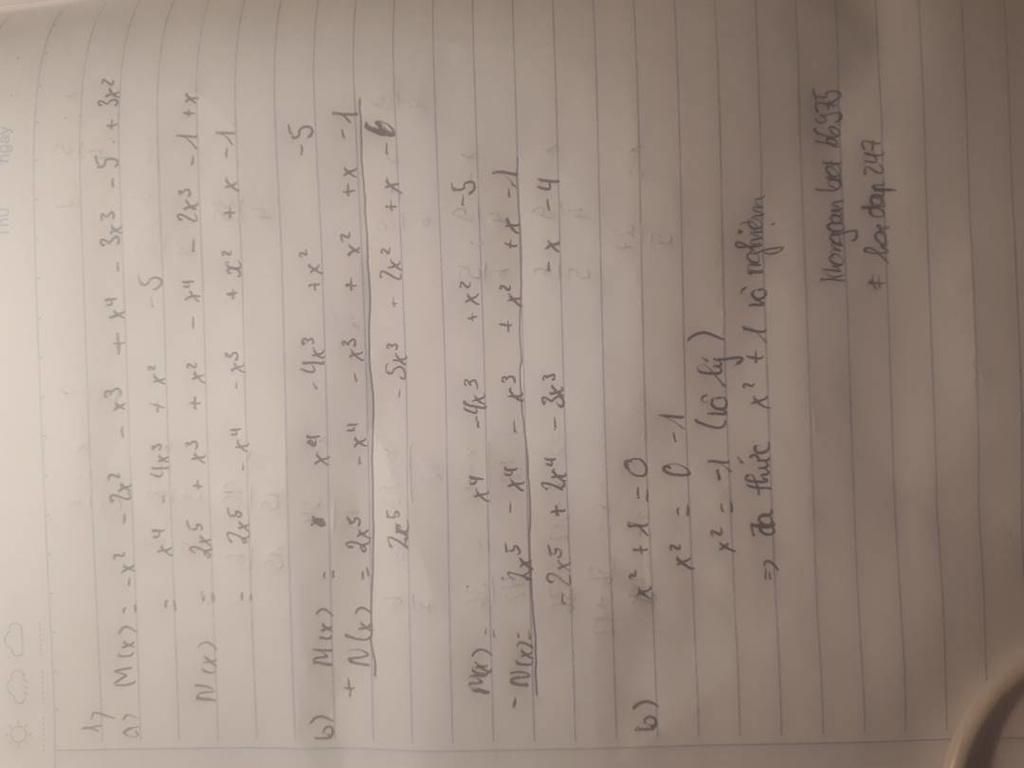 17
a) M(x) = -x² - 2x² - x³ + x⁴ - 3x³ - 5 + 3x²
= x⁴ - 4x³ + x² - 5
N(x) = 2x⁵ + x³ + x² - x⁴ - 2x³ - 1 + x
= 2x⁵ - x⁴ - x³ + x² + x - 1
b) M(x) = x⁴ - 4x³ + x² - 5
+ N(x) = 2x⁵ - x⁴ - x³ + x² + x - 1
2x⁵ - 5x³ + 2x² + x - 6
M(x) = x⁴ - 4x³ + x² - 5
- N(x) = 2x⁵ - x⁴ - x³ + x² + x - 1
- 2x⁵ + 2x⁴ - 3x³ - x - 4
b) x² + 1 = 0
x² = 0 - 1
x² = -1 (Vô lý)
=> Đa thức x² + 1 vô nghiệm
+ hoidap247